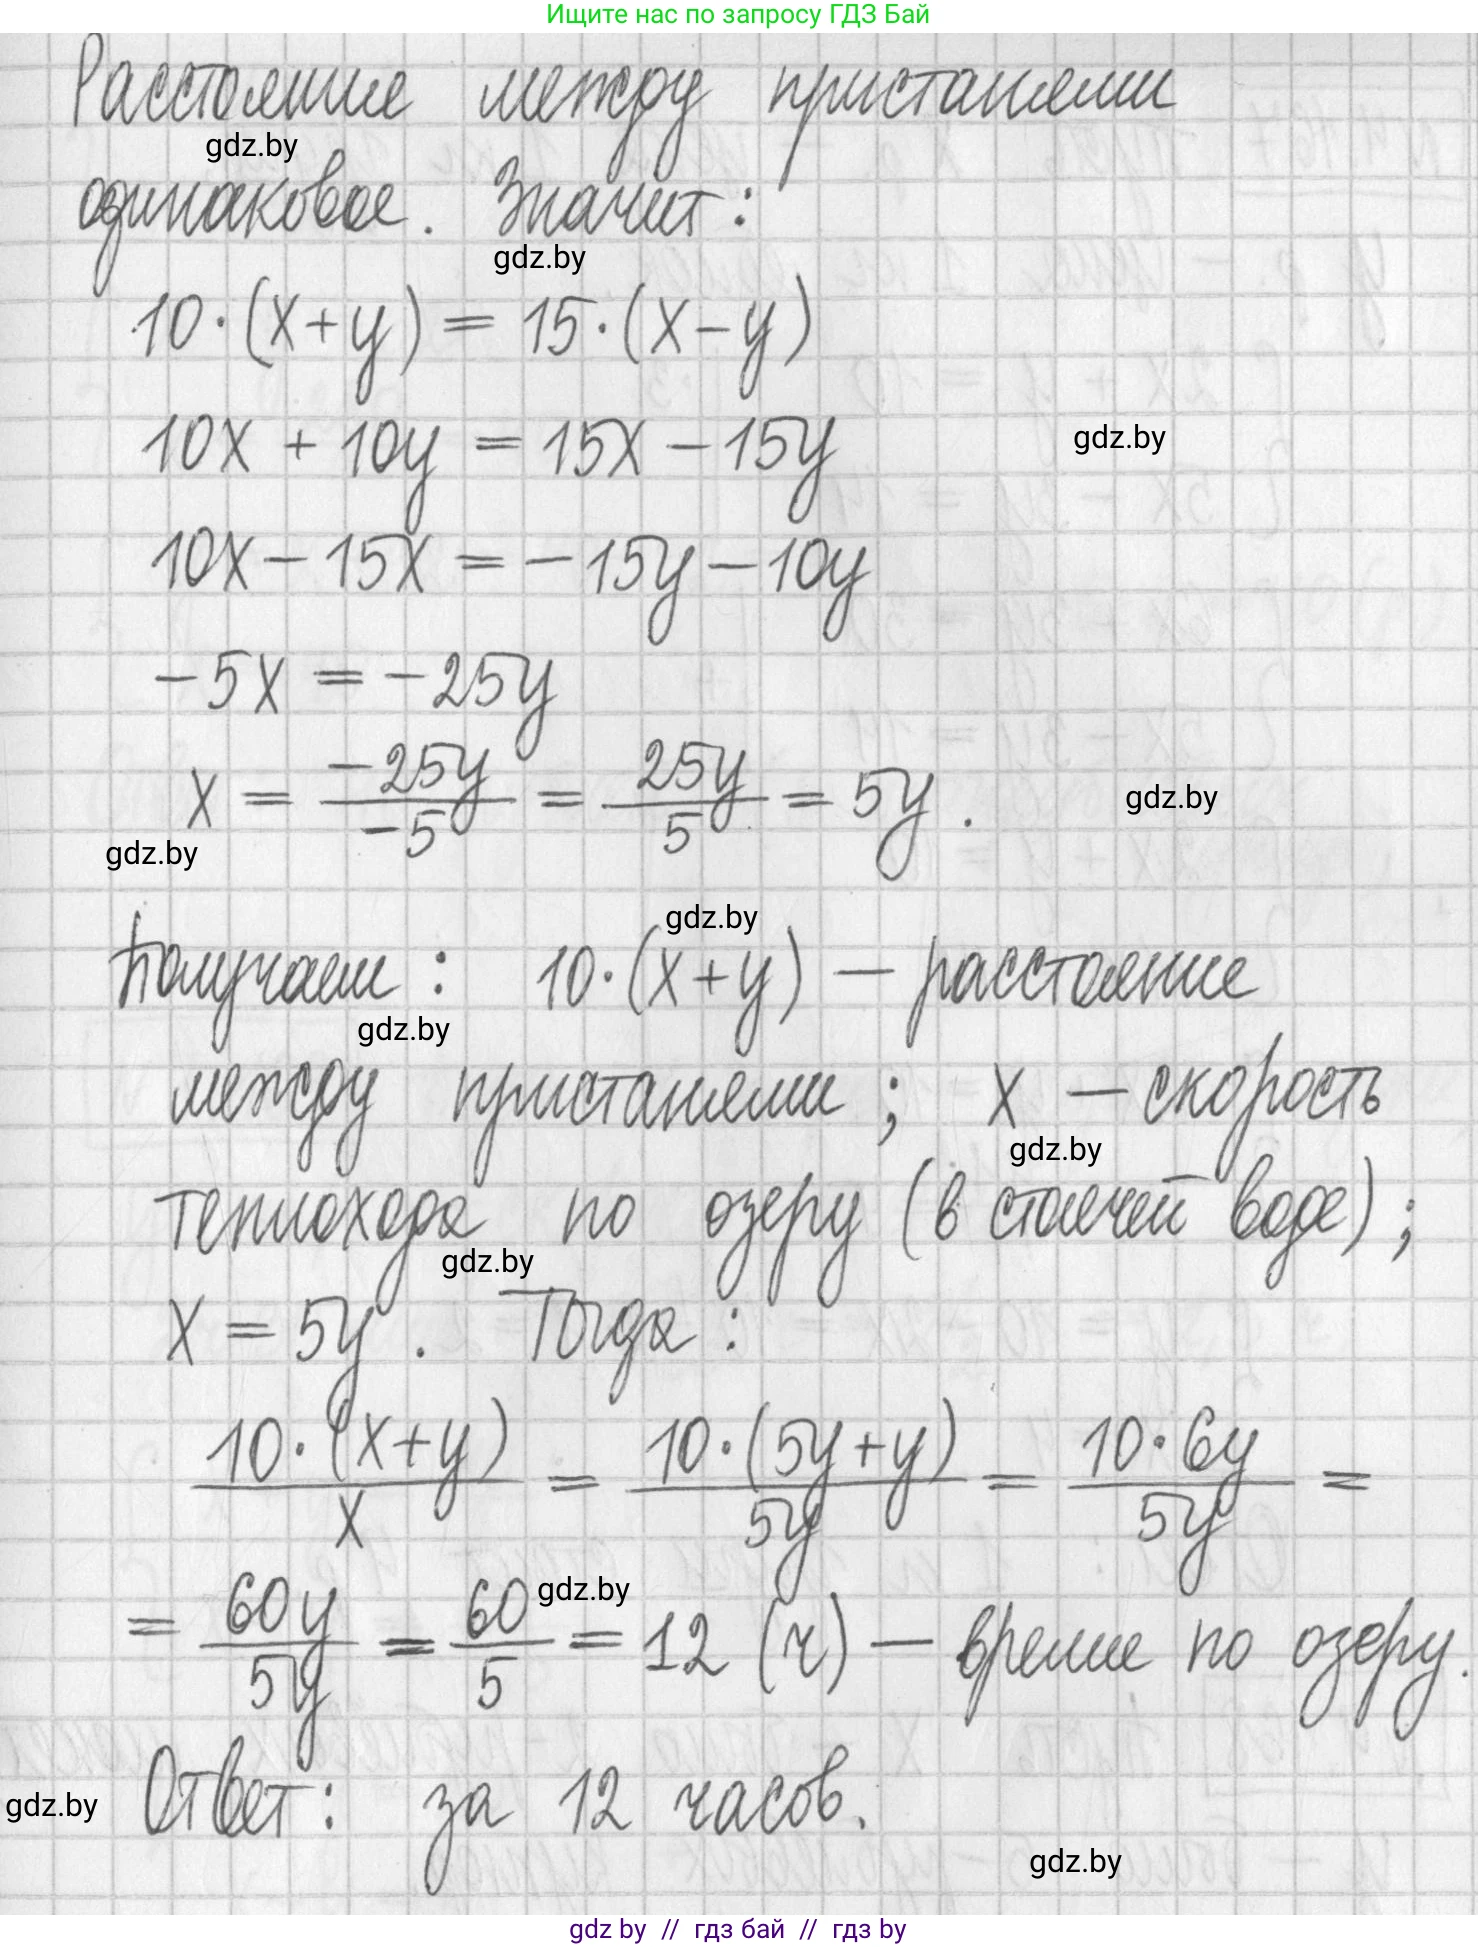 Ищите нас по запросу ГДЗ Бай
Расстояние между пристанями
gdz.by
одинаковое. Значит:
gdz.by
10·(x+y) = 15·(x−y)
10x + 10y = 15x − 15y
gdz.by
10x − 15x = −15y − 10y
−5x = −25y
x = −25y/−5 = 25y/5 = 5y.
gdz.by
gdz.by
gdz.by
Получаем: 10·(x+y) — расстояние
gdz.by
между пристанями; x — скорость
gdz.by
теплохода по озеру (в стоячей воде);
gdz.by
x = 5y. Тогда:
10·(x+y)/x = 10·(5y+y)/5y = 10·6y/5y =
gdz.by
= 60y/5y = 60/5 = 12 (ч) — время по озеру.
gdz.by
Ответ: за 12 часов.
gdz.by
gdz by // гдз бай // гдз by